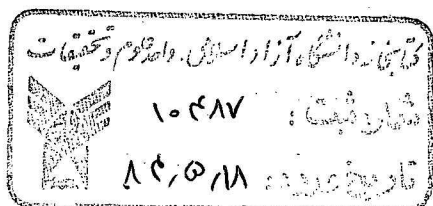 کتابخانه دانشگاه آزاد اسلامی، واحد علوم و تحقیقات
شماره ثبت: ۱۰۴۸۷
تاریخ ورود: ۸۴٫۵٫۱۸